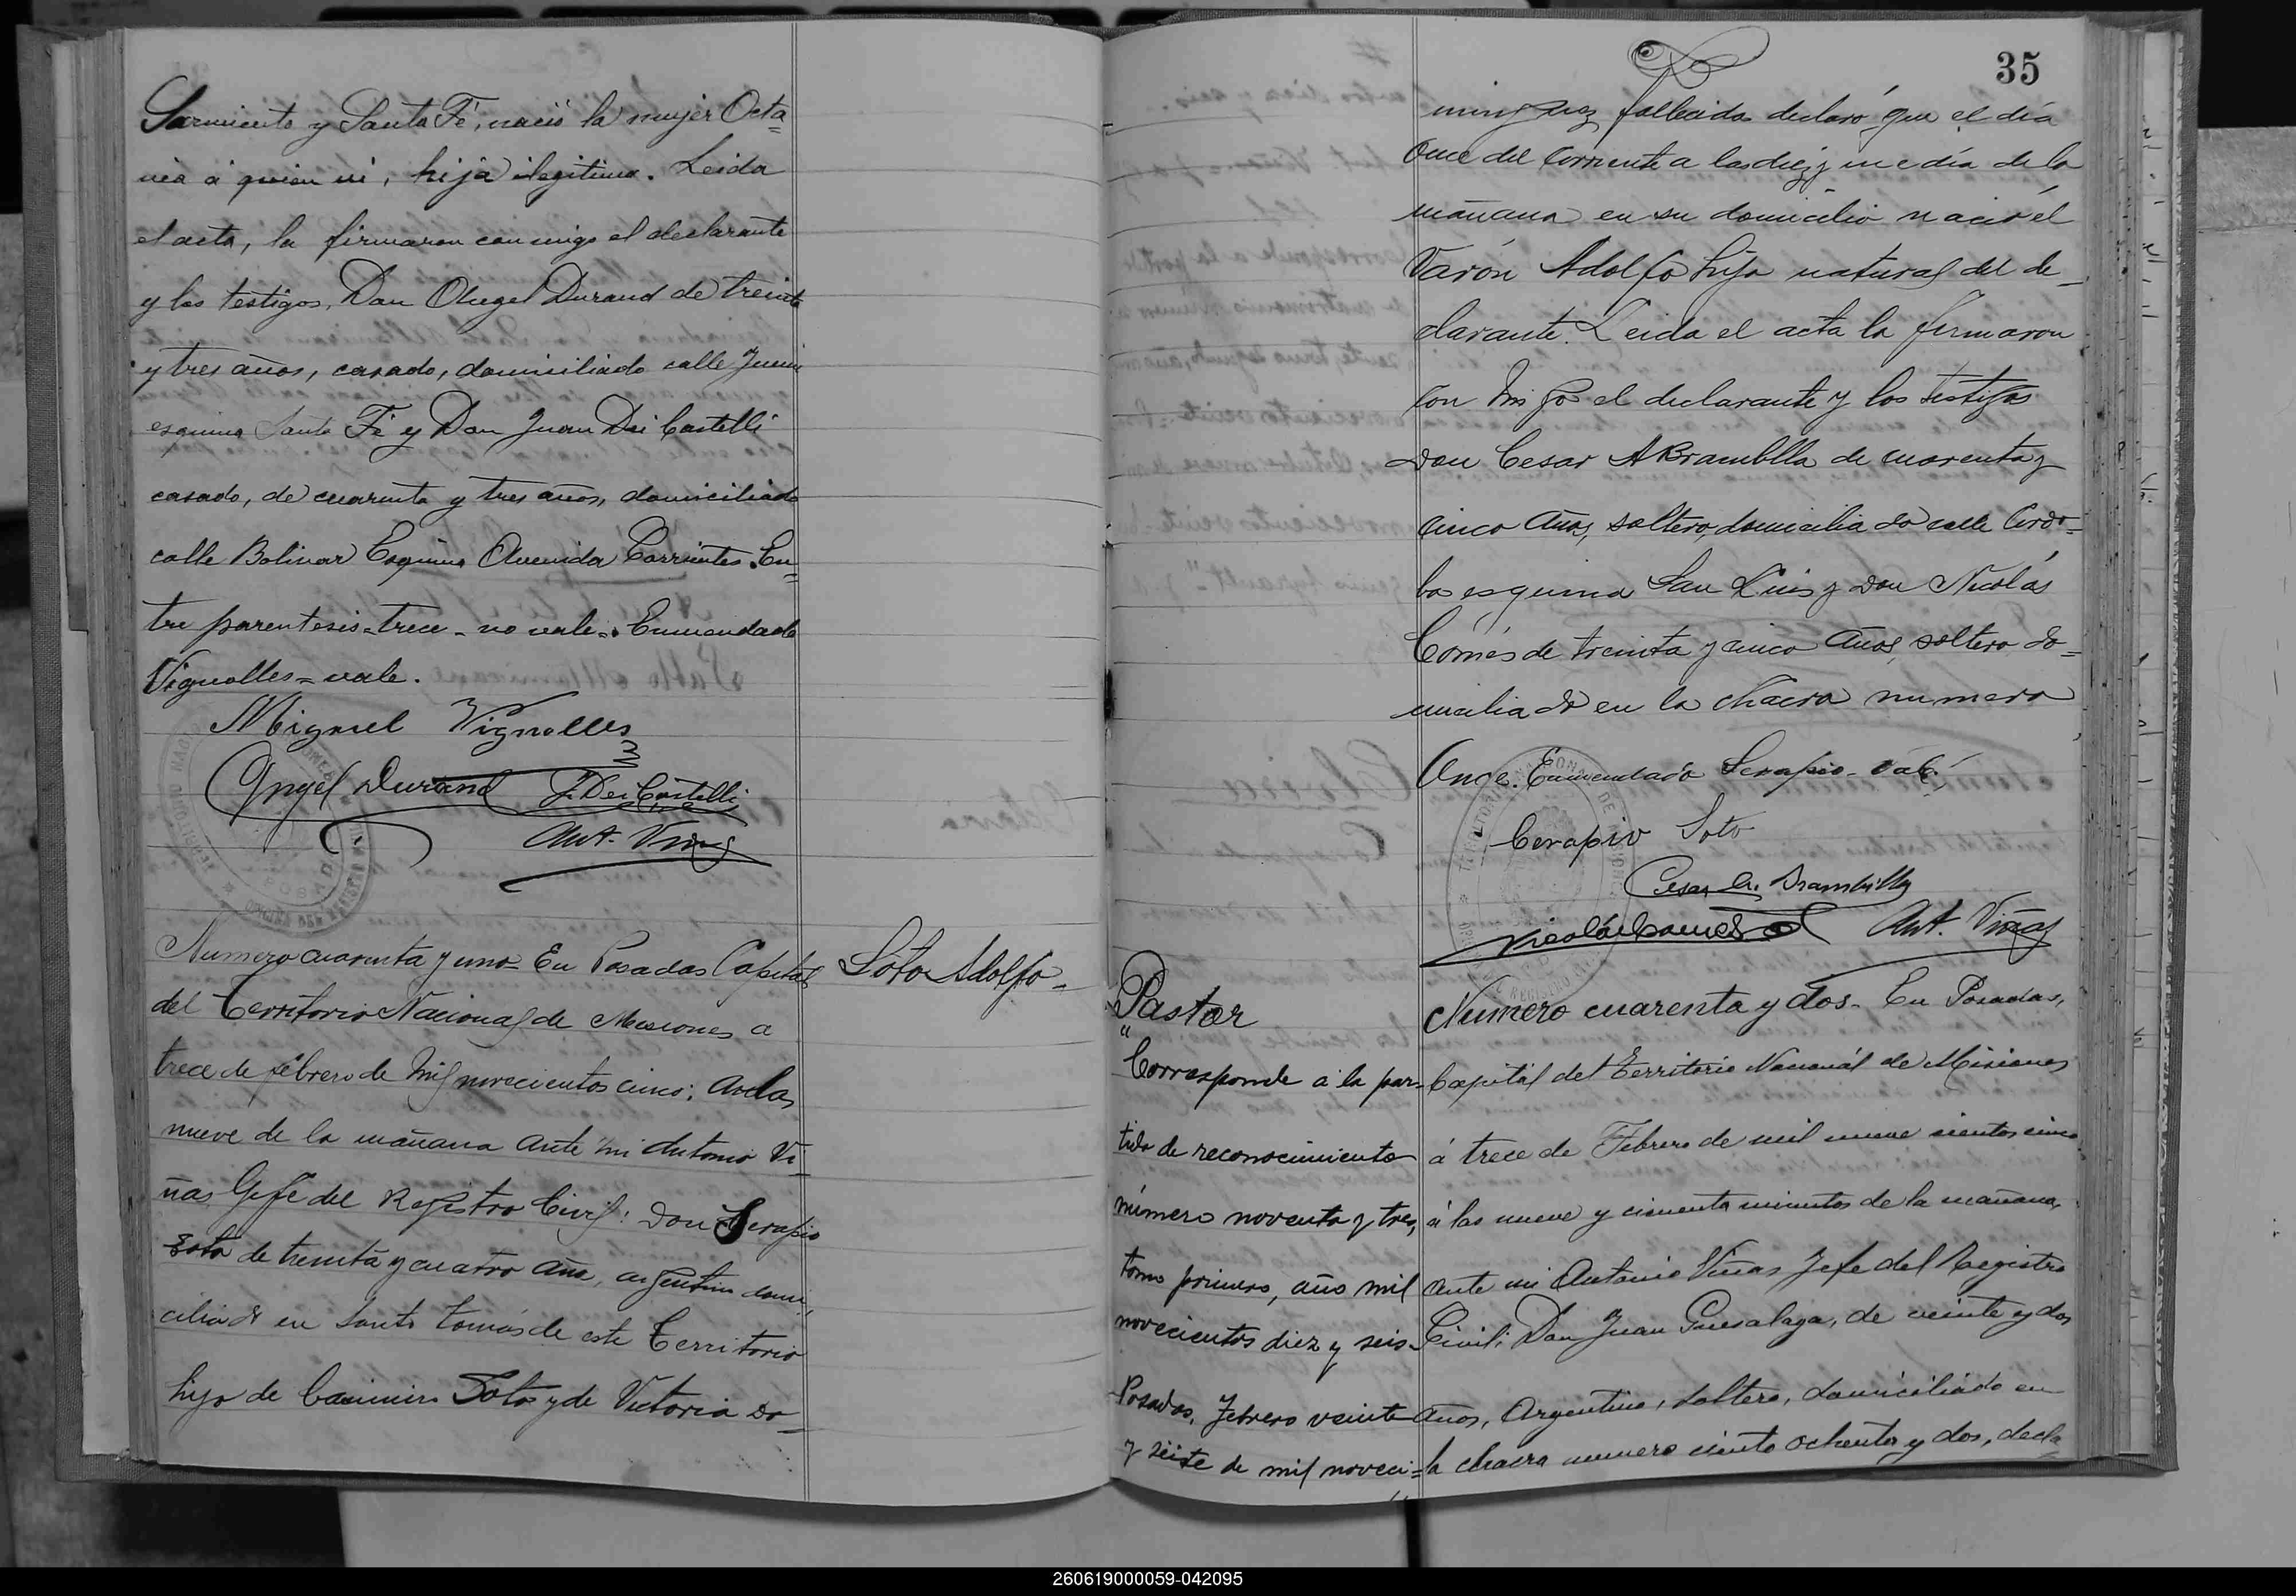 Sarmiento y Santa Fé, nació la mujer Octa=
via á quien vi, hija ilegitima. Leida
el acta, la firmaron conmigo el declarante
y los testigos, Don Angel Durand de treinta
y tres años, casado, domiciliado calle Junin
esquina Santa Fé y Don Juan Dei Castelli
casado, de cuarenta y tres años, domiciliado
calle Bolivar Esquina Avenida Corrientes. En=
tre parentesis=trece-no vale=Enmendado
Vignolles=vale.
Miguel Vignolles
Angel Durand J. Dei Castelli
Ant. Viñas
Numero cuarenta y uno= En Posadas Capital
del Territorio Nacional de Misiones a
trece de febrero de Mil novecientos cinco; a las
nueve de la mañana ante mi Antonio Vi=
ñas Gefe del Registro Civil: Don Serapio
Soto de treinta y cuatro años, argentino domi=
ciliado en Santo tomás de este Territorio
hijo de Casimiro Soto y de Victoria Do=
Soto Adolfo-
35
minguez fallecida declaró que el día
Once del corriente a las diez y media de la
mañana en su domicilio nació el
Varón Adolfo hijo natural del de=
clarante. Leida el acta la firmaron
con migo el declarante y los testigos
Don Cesar A Bramblla de cuarenta y
cinco años, soltero, domiciliado calle Cordo=
ba esquina San Luis y Don Nicolás
Comes de treinta y cinco años, soltero do=
miciliado en la chacra numero
Once. Enmendado Serapio-vale
Cerapio Soto
Cesar A. Brambilla
Nicolás Comes Ant. Viñas
Pastor
"Corresponde á la par=
tida de reconocimiento
número noventa y tres,
tomo primero, año mil
novecientos diez y seis.
Posadas, Febrero veinte
y siete de mil noveci=
Numero cuarenta y dos- En Posadas,
Capital del Territorio Nacional de Misiones
á trece de Febrero de mil nueve cientos cinco
á las nueve y cincuenta minutos de la mañana,
ante mi Antonio Viñas Jefe del Registro
Civil; Don Juan Guesalaga, de veinte y dos
años, Argentino, soltero, domiciliado en
la chacra numero ciento ochenta y dos, decla=
260619000059-042095